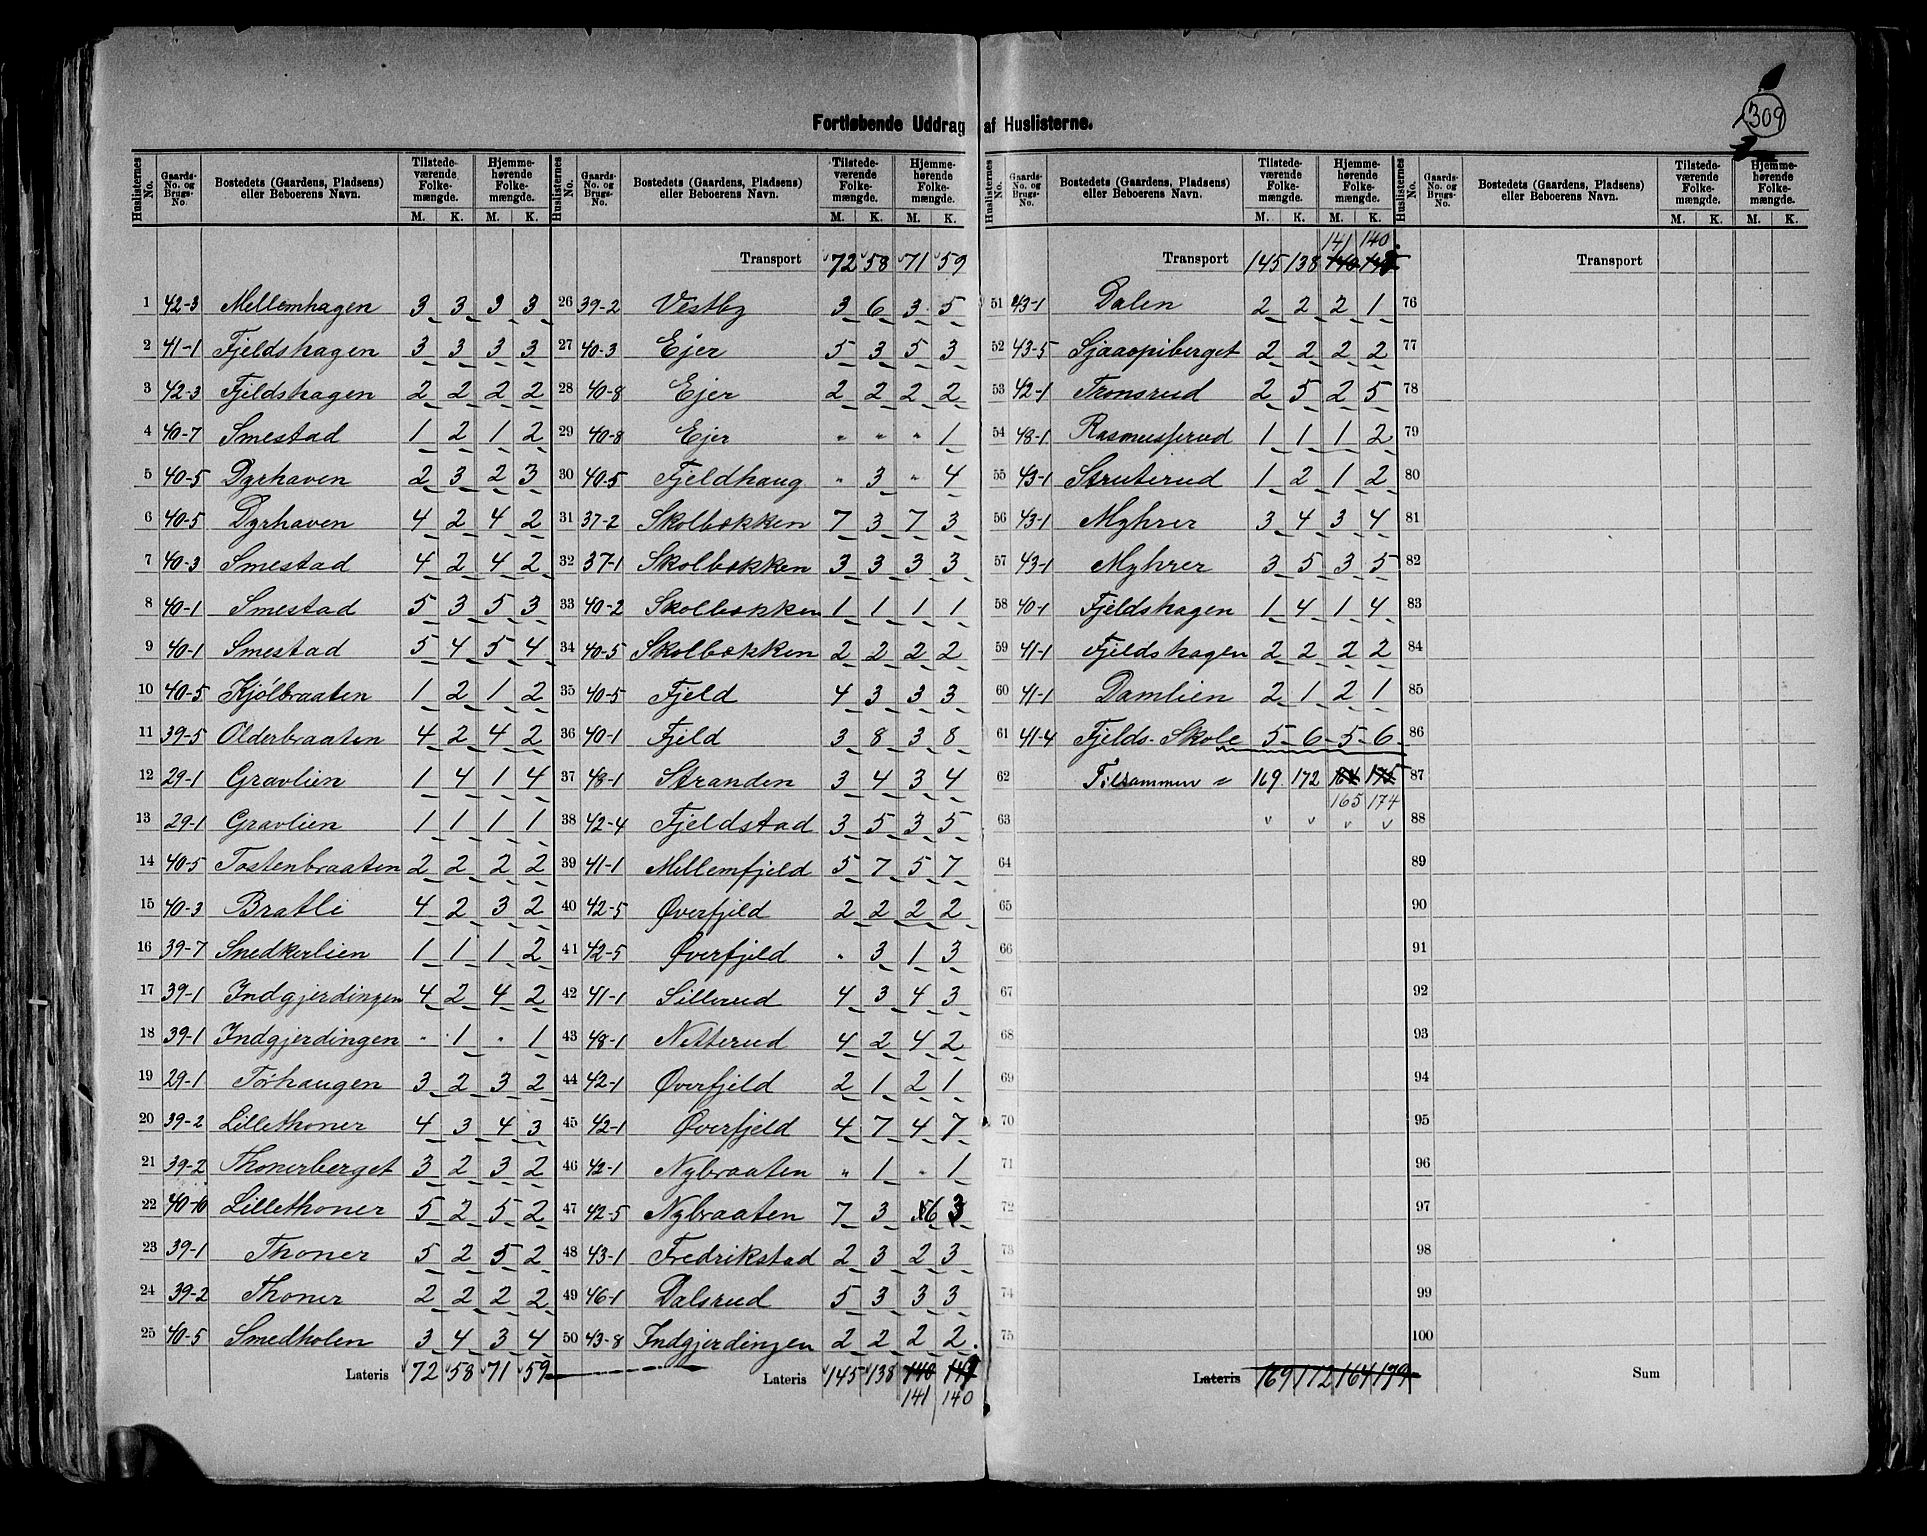 309
Fortløbende Uddrag af Huslisterne.
Huslisternes No. | Gaards-No. og Brugs-No. | Bostedets (Gaardens, Pladsens) eller Beboerens Navn. | Tilstedeværende Folkemængde. M. K. | Hjemmehørende Folkemængde. M. K.
1 42-3 Mellemhagen 3 3 3 3
2 41-1 Fjeldshagen 3 3 3 3
3 42-3 Fjeldshagen 2 2 2 2
4 40-7 Smestad 1 2 1 2
5 40-5 Dyrhaven 2 3 2 3
6 40-5 Dyrhaven 4 2 4 2
7 40-3 Smestad 4 2 4 2
8 40-1 Smestad 5 3 5 3
9 40-1 Smestad 5 4 5 4
10 40-5 Kjølbraaten 1 2 1 2
11 39-5 Olderbraaten 4 2 4 2
12 29-1 Gravlien 1 4 1 4
13 29-1 Gravlien 1 1 1 1
14 40-5 Tostenbraaten 2 2 2 2
15 40-3 Bratli 4 2 3 2
16 39-7 Snedkerlien 1 1 1 2
17 39-1 Indgjerdingen 4 2 4 2
18 39-1 Indgjerdingen " 1 " 1
19 29-1 Tøhaugen 3 2 3 2
20 39-2 Lillethoner 4 3 4 3
21 39-2 Thonerberget 3 2 3 2
22 40-10 Lillethoner 5 2 5 2
23 39-1 Thoner 5 2 5 2
24 39-2 Thoner 2 2 2 2
25 40-5 Smedholen 3 4 3 4
Lateris 72 58 71 59
Huslisternes No. | Gaards-No. og Brugs-No. | Bostedets (Gaardens, Pladsens) eller Beboerens Navn. | Tilstedeværende Folkemængde. M. K. | Hjemmehørende Folkemængde. M. K.
Transport 72 58 71 59
26 39-2 Vestby 3 6 3 5
27 40-3 Ejer 5 3 5 3
28 40-8 Ejer 2 2 2 2
29 40-8 Ejer " " " 1
30 40-5 Fjeldhaug " 3 " 4
31 37-2 Skolbækken 7 3 7 3
32 37-1 Skolbækken 3 3 3 3
33 40-2 Skolbækken 1 1 1 1
34 40-5 Skolbækken 2 2 2 2
35 40-5 Fjeld 4 3 3 3
36 40-1 Fjeld 3 8 3 8
37 48-1 Stranden 3 4 3 4
38 42-4 Fjeldstad 3 5 3 5
39 41-1 Mellemfjeld 5 7 5 7
40 42-5 Øverfjeld 2 2 2 2
41 42-5 Øverfjeld " 3 1 3
42 41-1 Sillerud 4 3 4 3
43 48-1 Netterud 4 2 4 2
44 42-1 Øverfjeld 2 1 2 1
45 42-1 Øverfjeld 4 7 4 7
46 42-1 Nybraaten " 1 " 1
47 42-5 Nybraaten 7 3 6 3
48 43-1 Fredrikstad 2 3 2 3
49 46-1 Dalsrud 5 3 3 3
50 43-8 Indgjerdingen 2 2 2 2
Lateris 145 138 140
141 140
Huslisternes No. | Gaards-No. og Brugs-No. | Bostedets (Gaardens, Pladsens) eller Beboerens Navn. | Tilstedeværende Folkemængde. M. K. | Hjemmehørende Folkemængde. M. K.
141 140
Transport 145 138 140
51 43-1 Dalen 2 2 2 1
52 43-5 Sjaaopiberget 2 2 2 2
53 42-1 Tronsrud 2 5 2 5
54 48-1 Rasmusserud 1 1 1 2
55 43-1 Struterud 1 2 1 2
56 43-1 Myhrer 3 4 3 4
57 43-1 Myhrer 3 5 3 5
58 40-1 Fjeldshagen 1 4 1 4
59 41-1 Fjeldshagen 2 2 2 2
60 41-1 Damlien 2 1 2 1
61 41-4 Fjelds-Skole 5 6 5 6
62 Tilsammen = 169 172 164 175
63 165 174
64
65
66
67
68
69
70
71
72
73
74
75
Lateris 169 172 164 179
Huslisternes No. | Gaards-No. og Brugs-No. | Bostedets (Gaardens, Pladsens) eller Beboerens Navn. | Tilstedeværende Folkemængde. M. K. | Hjemmehørende Folkemængde. M. K.
Transport
76
77
78
79
80
81
82
83
84
85
86
87
88
89
90
91
92
93
94
95
96
97
98
99
100
Sum